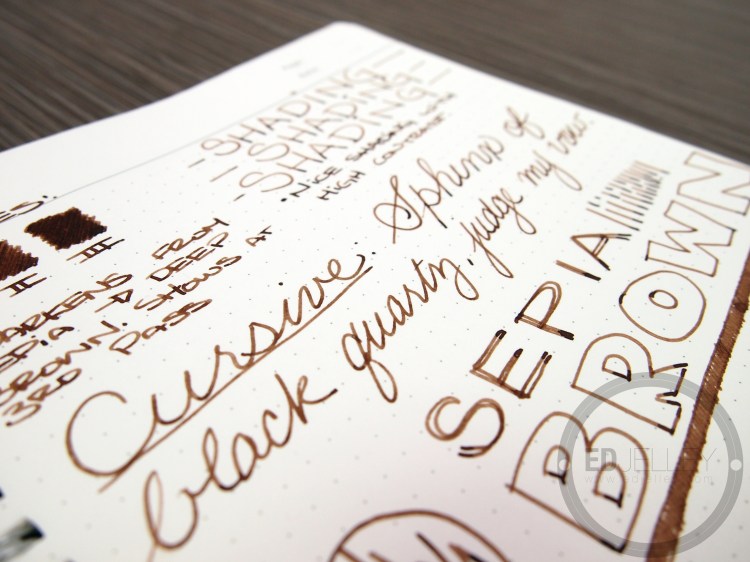 - SHADING -
- SHADING -
- SHADING
• NICE SHADING WITH
HIGH CONTRAST
ES:
II III
DARKENS FROM
SEPIA → DEEP
BROWN. SHOWS AT
3RD PASS
Cursive: Sphinx of
black quartz, judge my vow.
SEPIA
BROWN
ED JELLEY